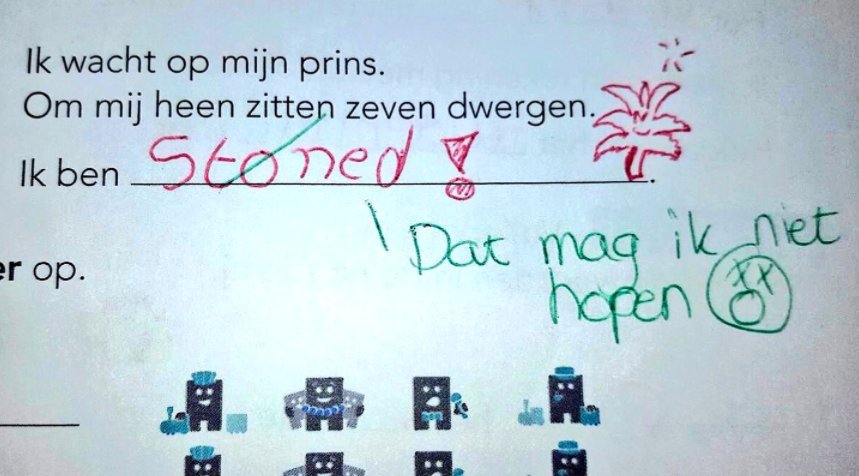 Ik wacht op mijn prins.
Om mij heen zitten zeven dwergen.
Ik ben Stoned! .
Dat mag ik niet
hopen
er op.